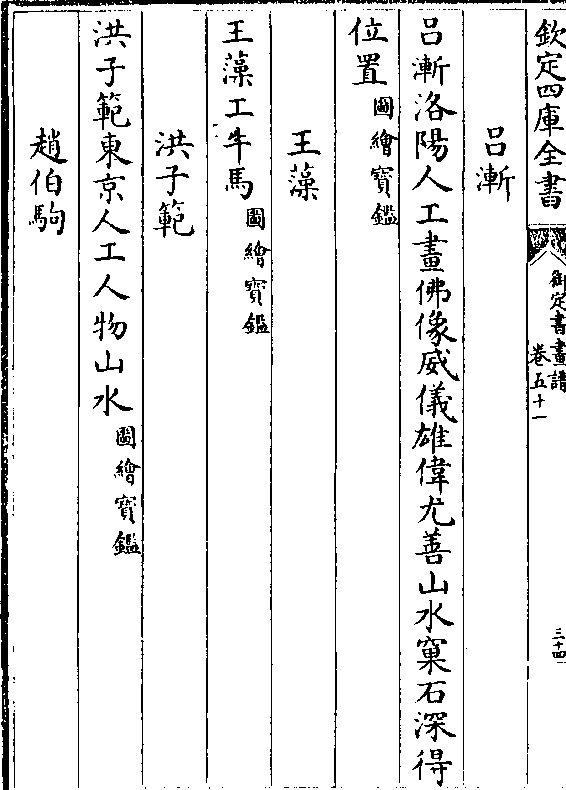 欽定四庫全書
御定書畫譜
卷五十一
三十四
呂漸
呂漸洛陽人工畫佛像威儀雄偉尤善山水窠石深得
位置圖繪寶鑑
王藻
王藻工牛馬圖繪寶鑑
洪子範
洪子範東京人工人物山水圖繪寶鑑
趙伯駒